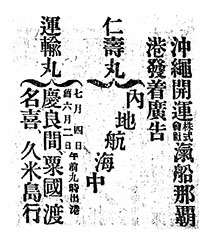 沖繩開運株式會社滊船那覇
港發着廣告
仁壽丸 内地航海中
運輸丸 七月四日舊六月二日午前九時出港
慶良間、粟國、渡
名喜、久米島行